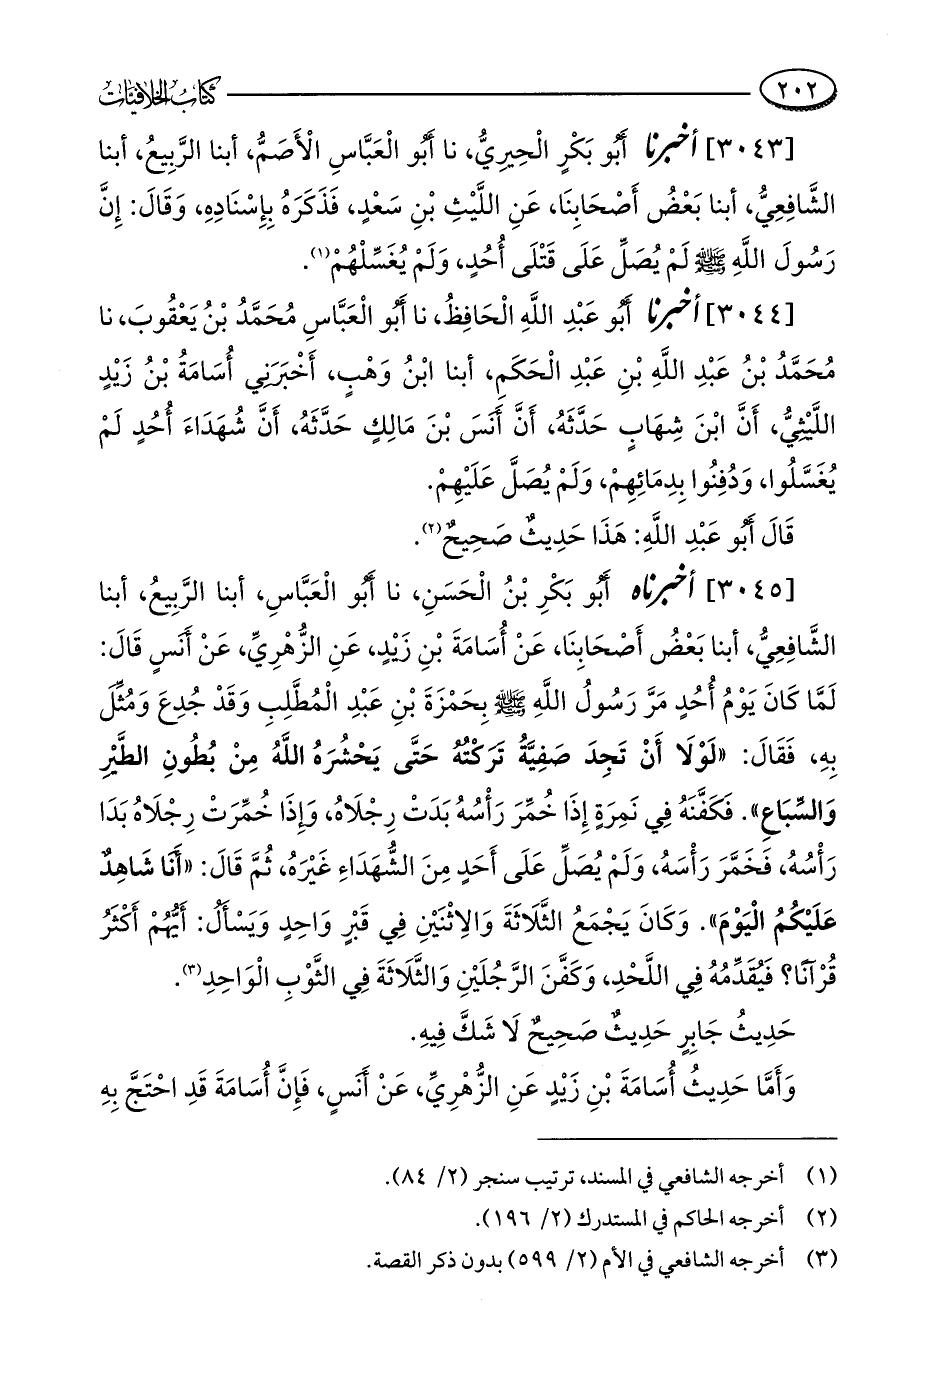 ٢٠٢ كتاب الخلافيات
[٣٠٤٣] أخبرنا أَبُو بَكْرٍ الْحِيرِيُّ، نا أَبُو الْعَبَّاسِ الْأَصَمُّ، أبنا الرَّبِيعُ، أبنا
الشَّافِعِيُّ، أبنا بَعْضُ أَصْحَابِنَا، عَنِ اللَّيْثِ بْنِ سَعْدٍ، فَذَكَرَهُ بِإِسْنَادِهِ، وَقَالَ: إِنَّ
رَسُولَ اللَّهِ ﷺ لَمْ يُصَلِّ عَلَى قَتْلَى أُحُدٍ، وَلَمْ يُغَسِّلْهُمْ(١).
[٣٠٤٤] أخبرنا أَبُو عَبْدِ اللَّهِ الْحَافِظُ، نا أَبُو الْعَبَّاسِ مُحَمَّدُ بْنُ يَعْقُوبَ، نا
مُحَمَّدُ بْنُ عَبْدِ اللَّهِ بْنِ عَبْدِ الْحَكَمِ، أبنا ابْنُ وَهْبٍ، أَخْبَرَنِي أُسَامَةُ بْنُ زَيْدٍ
اللَّيْثِيُّ، أَنَّ ابْنَ شِهَابٍ حَدَّثَهُ، أَنَّ أَنَسَ بْنَ مَالِكٍ حَدَّثَهُ، أَنَّ شُهَدَاءَ أُحُدٍ لَمْ
يُغَسَّلُوا، وَدُفِنُوا بِدِمَائِهِمْ، وَلَمْ يُصَلَّ عَلَيْهِمْ.
قَالَ أَبُو عَبْدِ اللَّهِ: هَذَا حَدِيثٌ صَحِيحٌ(٢).
[٣٠٤٥] أخبرناه أَبُو بَكْرِ بْنُ الْحَسَنِ، نا أَبُو الْعَبَّاسِ، أبنا الرَّبِيعُ، أبنا
الشَّافِعِيُّ، أبنا بَعْضُ أَصْحَابِنَا، عَنْ أُسَامَةَ بْنِ زَيْدٍ، عَنِ الزُّهْرِيِّ، عَنْ أَنَسٍ قَالَ:
لَمَّا كَانَ يَوْمُ أُحُدٍ مَرَّ رَسُولُ اللَّهِ ﷺ بِحَمْزَةَ بْنِ عَبْدِ الْمُطَّلِبِ وَقَدْ جُدِعَ وَمُثِّلَ
بِهِ، فَقَالَ: «لَوْلَا أَنْ تَجِدَ صَفِيَّةُ تَرَكْتُهُ حَتَّى يَحْشُرَهُ اللَّهُ مِنْ بُطُونِ الطَّيْرِ
وَالسِّبَاعِ». فَكَفَّنَهُ فِي نَمِرَةٍ إِذَا خُمِّرَ رَأْسُهُ بَدَتْ رِجْلَاهُ، وَإِذَا خُمِّرَتْ رِجْلَاهُ بَدَا
رَأْسُهُ، فَخَمَّرَ رَأْسَهُ، وَلَمْ يُصَلِّ عَلَى أَحَدٍ مِنَ الشُّهَدَاءِ غَيْرَهُ، ثُمَّ قَالَ: «أَنَا شَاهِدٌ
عَلَيْكُمُ الْيَوْمَ». وَكَانَ يَجْمَعُ الثَّلَاثَةَ وَالِاثْنَيْنِ فِي قَبْرٍ وَاحِدٍ وَيَسْأَلُ: أَيُّهُمْ أَكْثَرُ
قُرْآنًا؟ فَيُقَدِّمُهُ فِي اللَّحْدِ، وَكَفَّنَ الرَّجُلَيْنِ وَالثَّلَاثَةَ فِي الثَّوْبِ الْوَاحِدِ(٣).
حَدِيثُ جَابِرٍ حَدِيثٌ صَحِيحٌ لَا شَكَّ فِيهِ.
وَأَمَّا حَدِيثُ أُسَامَةَ بْنِ زَيْدٍ عَنِ الزُّهْرِيِّ، عَنْ أَنَسٍ، فَإِنَّ أُسَامَةَ قَدِ احْتَجَّ بِهِ
(١) أخرجه الشافعي في المسند، ترتيب سنجر (٢/ ٨٤).
(٢) أخرجه الحاكم في المستدرك (٢/ ١٩٦).
(٣) أخرجه الشافعي في الأم (٢/ ٥٩٩) بدون ذكر القصة.